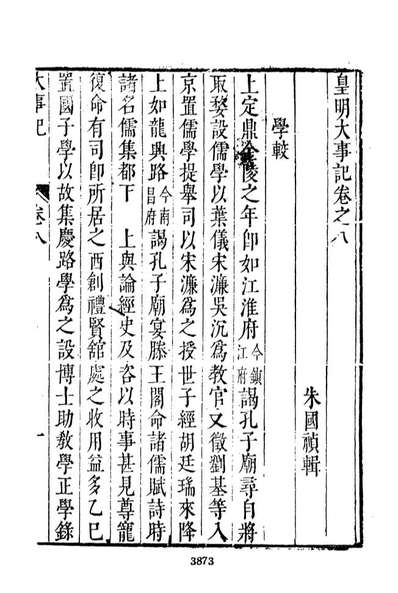 皇明大事記卷之八
朱國禎輯
學較
上定鼎金陵之年卽如江淮府今鎮江府謁孔子廟尋自將
取婺設儒學以葉儀宋濂吳沉爲教官又徵劉基等入
京置儒學提舉司以宋濂爲之授世子經胡廷瑞來降
上如龍興路今南昌府謁孔子廟宴滕王閣命諸儒賦詩時
諸名儒集都下　上與論經史及咨以時事甚見尊寵
復命有司卽所居之西創禮賢舘處之收用益多乙巳
置國子學以故集慶路學爲之設博士助敎學正學錄
大事記　卷八　一
3873